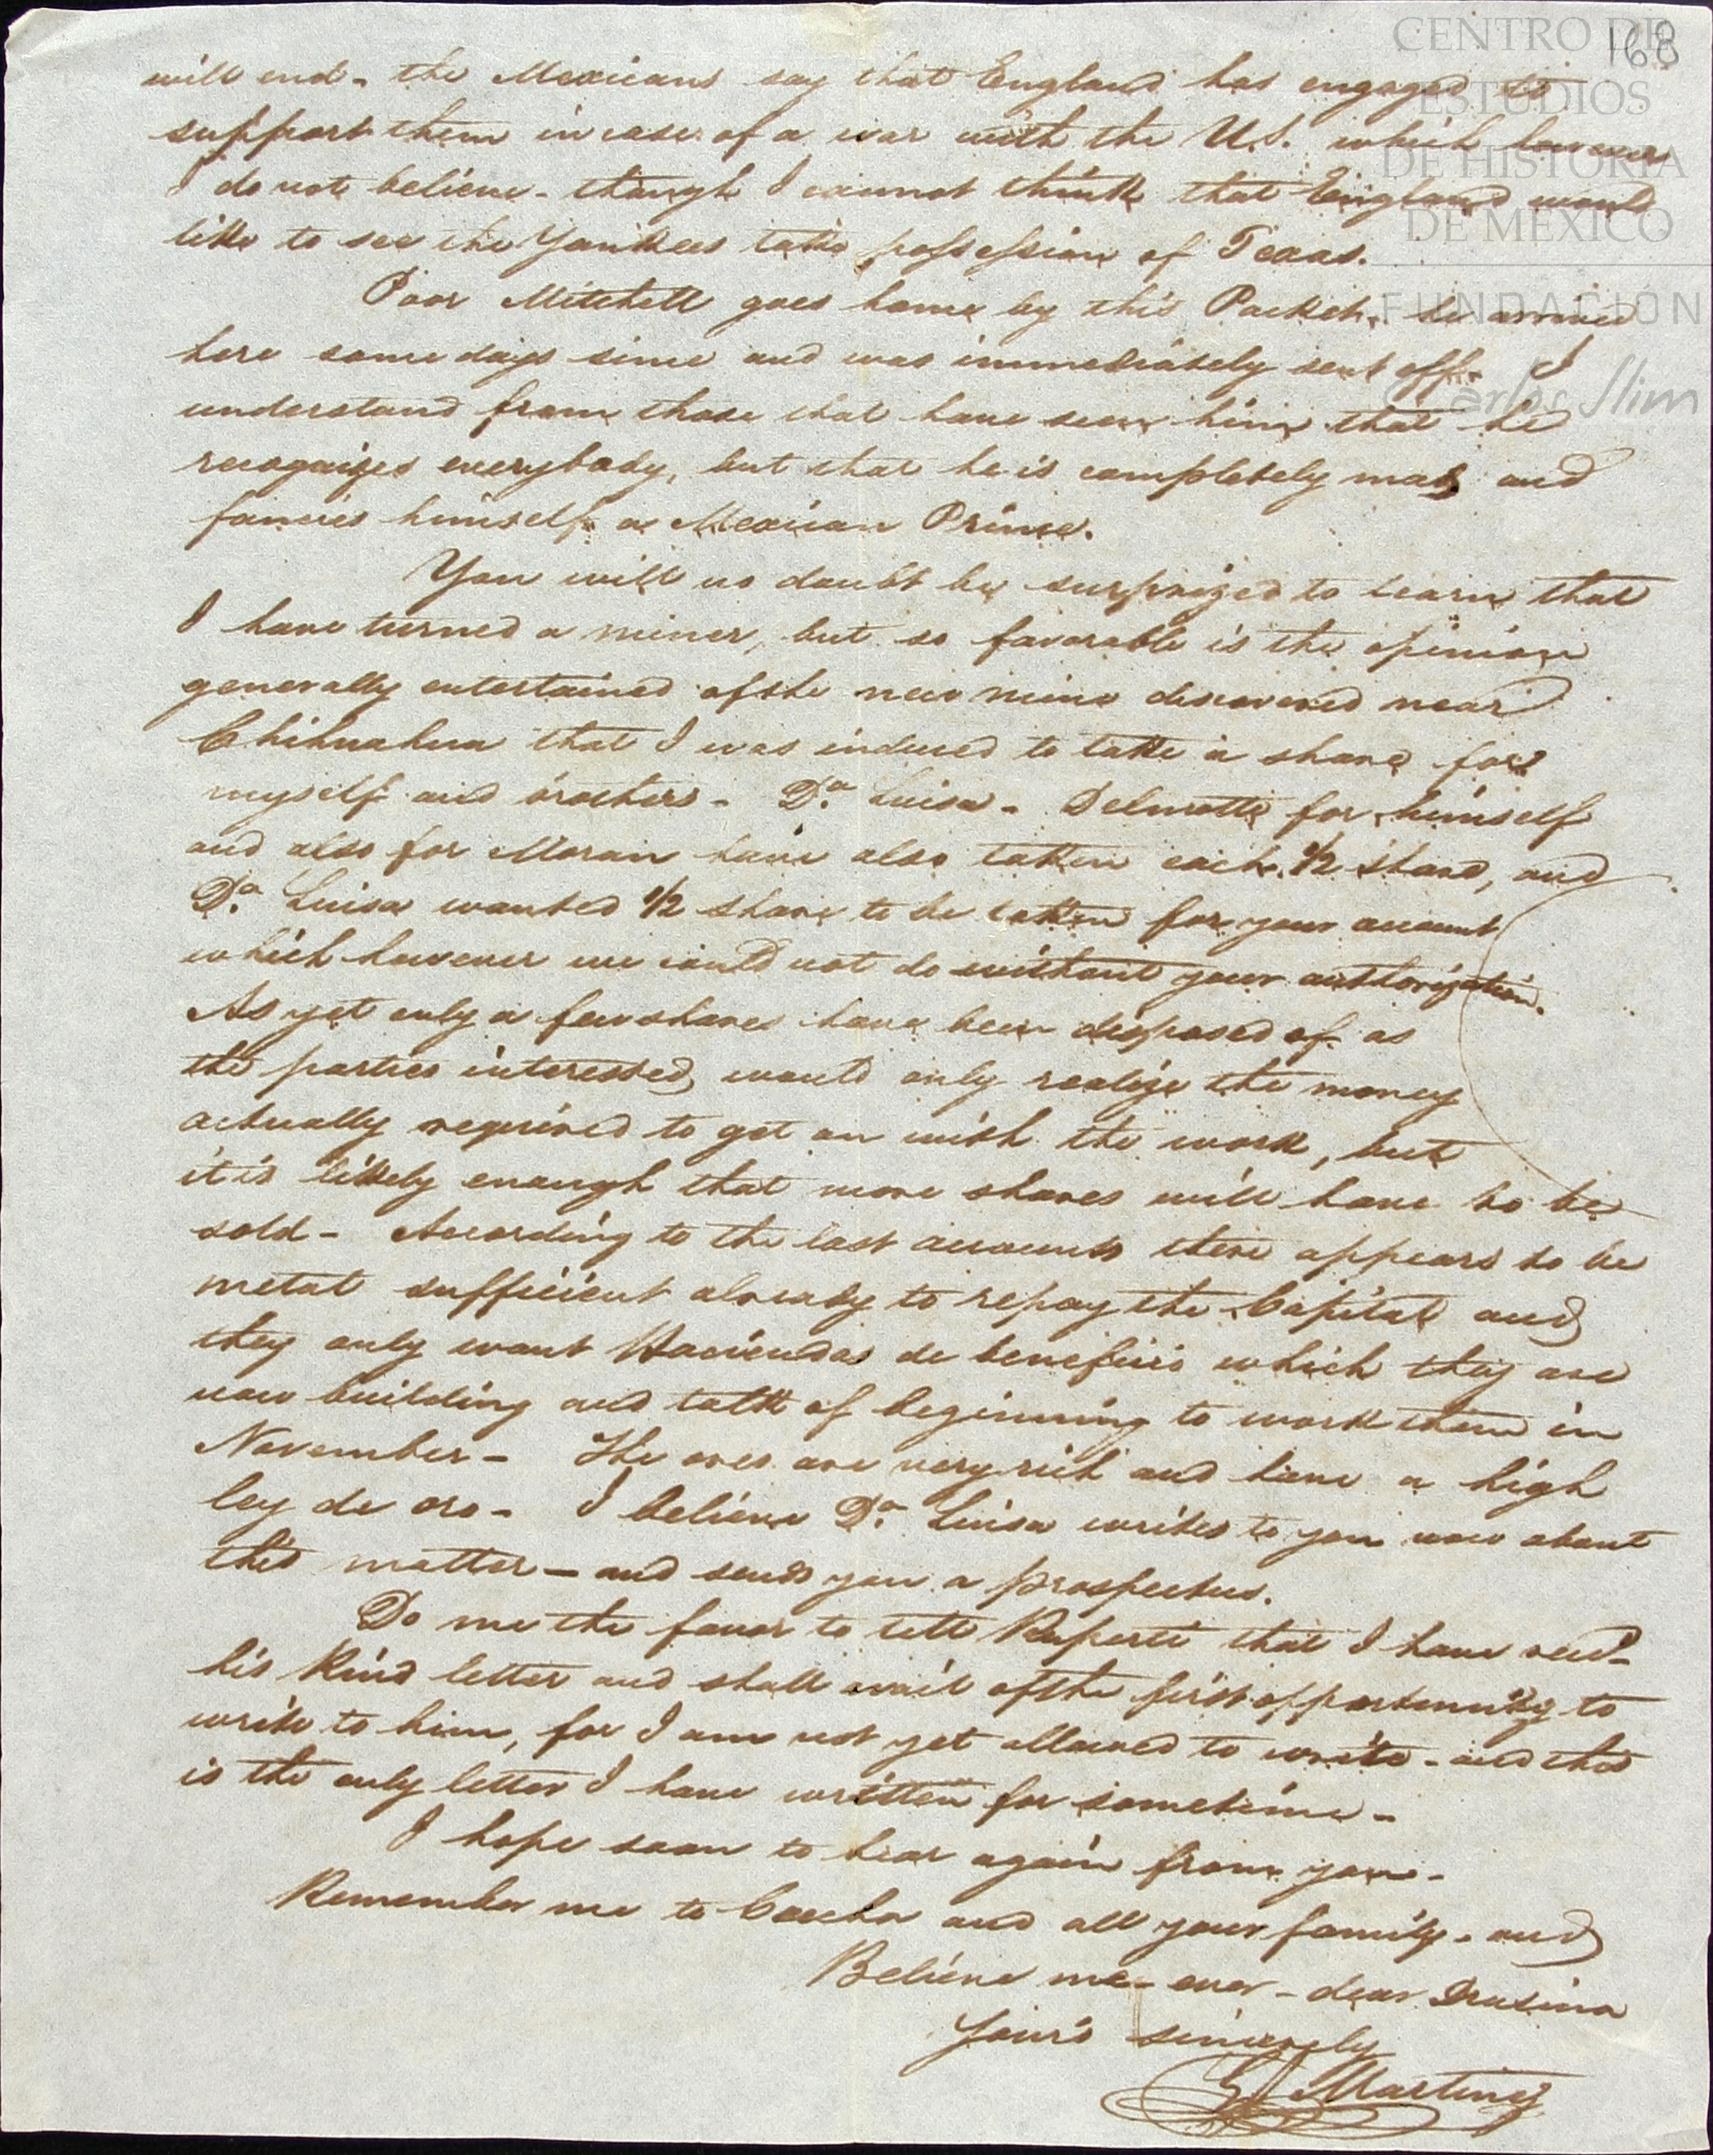 168
CENTRO DE
ESTUDIOS
DE HISTORIA
DE MEXICO
FUNDACION
Carlos Slim
will end - the Mexicans say that England has engaged to
support them in case of a war with the U.S. which however
I do not believe - though I cannot think that England would
like to see the Yankees take possession of Texas.
Poor Mitchell goes home by this Packet, he arrived
here some days since and was immediately sent off - I
understand from those that have seen him that he
recognizes everybody, but that he is completely mad and
fancies himself a Mexican Prince.
You will no doubt be surprized to learn that
I have turned a miner, but so favorable is the opinion
generally entertained of the new mine discovered near
Chihuahua that I was induced to take a share for
myself and brothers - Da. Luisa - Delmotte for himself
and also for Moran have also taken each 1/2 share, and
Da. Luisa wanted 1/2 share to be taken for your account
which however we could not do without your authorization.
As yet only a few shares have been disposed of as
the parties interessed would only realize the money
actually required to get on with the work, but
it is likely enough that more shares will have to be
sold - According to the last accounts there appears to be
metal sufficient already to repay the Capital and
they only want Haciendas de beneficio which they are
now building and talk of beginning to work them in
November - The ores are very rich and have a high
ley de oro - I believe Da. Luisa writes to you now about
this matter - and sends you a prospectus.
Do me the favor to tell Ruperti that I have recd.
his kind letter and shall avail of the first opportunity to
write to him, for I am not yet allowed to write - and this
is the only letter I have written for sometime -
I hope soon to hear again from you -
Remember me to Concha and all your family - and
Believe me ever - dear Drusina
Yours sincerely
Martinez